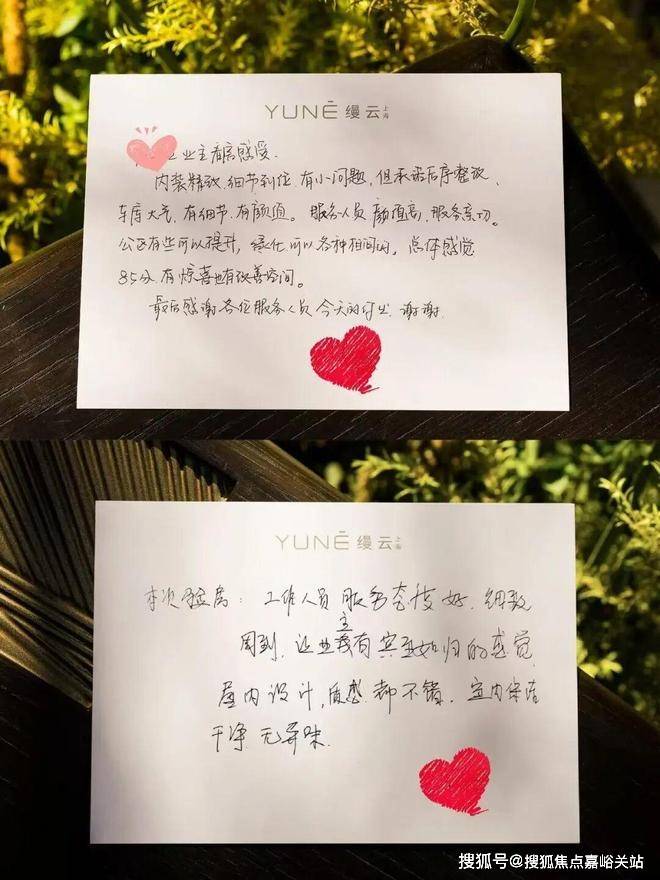 YUNĒ 缦云 上海
业主看房感受.
内装精致.细节到位.有小问题,但承诺后序整改.
车库大气.有细节.有颜值。服务人员颜值高,服务亲切。
公区有些可以提升,绿化可以各种相间的.总体感觉
85分.有惊喜也有改善空间。
最后感谢各位服务人员今天的付出.谢谢.
YUNĒ 缦云 上海
本次验房:工作人员服务态度好.细致
周到.让业主有宾至如归的感觉
屋内设计,质感都不错.室内保洁
干净 无异味.
搜狐号@搜狐焦点嘉峪关站